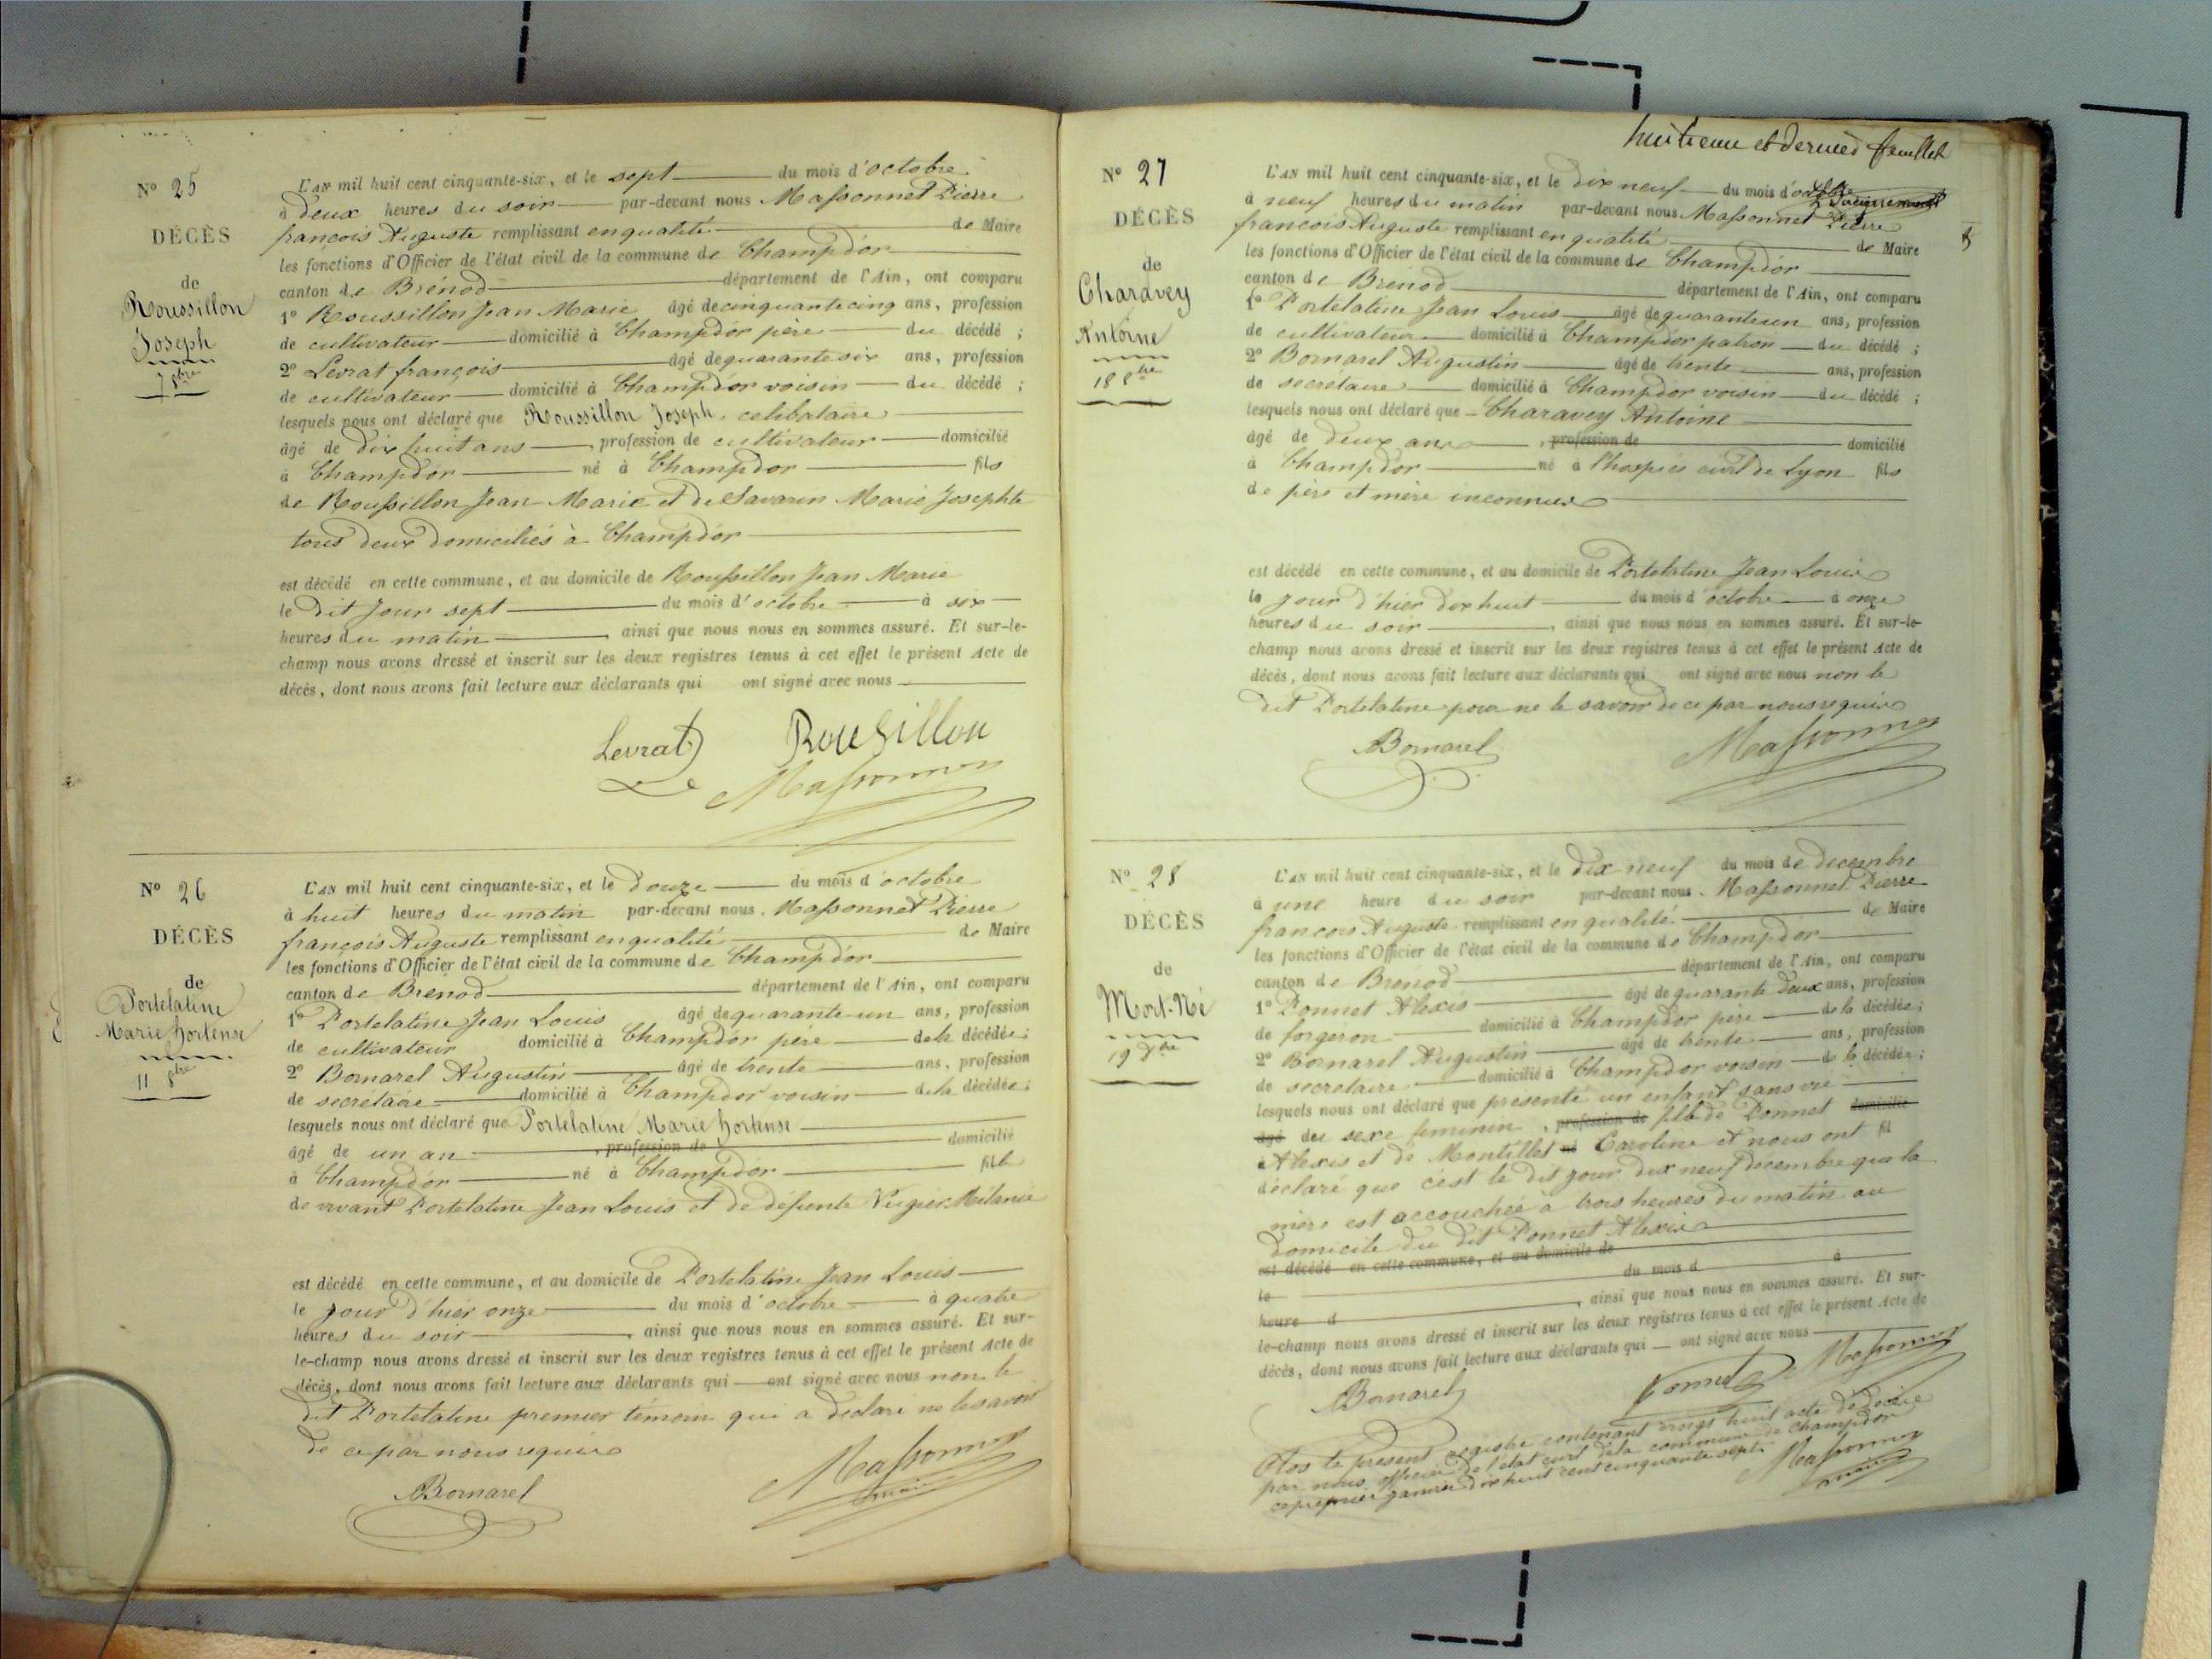 N° 25
DÉCÈS
de
Roussillon
Joseph
7 8bre
L'AN mil huit cent cinquante-six, et le sept du mois d'octobre
à deux heures du soir par-devant nous Massonnet Pierre
françois Auguste remplissant en qualité de Maire
les fonctions d'Officier de l'état civil de la commune de Champdor
canton de Brenod département de l'Ain, ont comparu
1° Roussillon Jean Marie âgé de cinquante cinq ans, profession
de cultivateur domicilié à Champdor père du décédé ;
2° Levrat françois âgé de quarante six ans, profession
de cultivateur domicilié à Champdor voisin du décédé ;
lesquels nous ont déclaré que Roussillon Joseph, celibataire
âgé de dix huit ans, profession de cultivateur domicilié
à Champdor né à Champdor fils
de Roussillon Jean Marie et de Savarin Marie Josephte
tous deux domiciliés à Champdor
est décédé en cette commune, et au domicile de Roussillon Jean Marie
le dit jour sept du mois d'octobre à six
heures du matin, ainsi que nous nous en sommes assuré. Et sur-le-
champ nous avons dressé et inscrit sur les deux registres tenus à cet effet le présent Acte de
décès, dont nous avons fait lecture aux déclarants qui ont signé avec nous
Levrat Rousillon
Massonnet
N° 26
DÉCÈS
de
Portelatine
Marie hortense
11 8bre
L'AN mil huit cent cinquante-six, et le douze du mois d'octobre
à huit heures du matin par-devant nous Massonnet Pierre
françois Auguste remplissant en qualité de Maire
les fonctions d'Officier de l'état civil de la commune de Champdor
canton de Brenod département de l'Ain, ont comparu
1° Portelatine Jean Louis âgé de quarante-un ans, profession
de cultivateur domicilié à Champdor père de la décédée ;
2° Bornarel Augustin âgé de trente ans, profession
de secretaire domicilié à Champdor voisin de la décédée ;
lesquels nous ont déclaré que Portelatine Marie hortense
âgé de un an, profession de domicilié
à Champdor né à Champdor fille
de vivant Portelatine Jean Louis et de défunte Mélanie
est décédé en cette commune, et au domicile de Portelatine Jean Louis
le jour d'hier onze du mois d'octobre à quatre
heures du soir, ainsi que nous nous en sommes assuré. Et sur-
le-champ nous avons dressé et inscrit sur les deux registres tenus à cet effet le présent Acte de
décès, dont nous avons fait lecture aux déclarants qui ont signé avec nous non le
dit Portelatine premier témoin qui a déclaré ne le savoir
de ce par nous requis
Bornarel Massonnet
maire
huitieme et dernier feuillet
8
N° 27
DÉCÈS
de
Charavey
Antoine
18 8bre
L'AN mil huit cent cinquante-six, et le dix neuf du mois d'octobre
à neuf heures du matin par-devant nous Massonnet Pierre
francois Auguste remplissant en qualité de Maire
les fonctions d'Officier de l'état civil de la commune de Champdor
canton de Brenod département de l'Ain, ont comparu
1° Portelatine Jean Louis âgé de quarante un ans, profession
de cultivateur domicilié à Champdor patron du décédé ;
2° Bornarel Augustin âgé de trente ans, profession
de secrétaire domicilié à Champdor voisin du décédé ;
lesquels nous ont déclaré que Charavey Antoine
âgé de deux ans, profession de domicilié
à Champdor né à l'hospice civil de Lyon fils
de père et mère inconnus
est décédé en cette commune, et au domicile de Portelatine Jean Louis
le jour d'hier dix huit du mois d'octobre à onze
heures du soir, ainsi que nous nous en sommes assuré. Et sur-le-
champ nous avons dressé et inscrit sur les deux registres tenus à cet effet le présent Acte de
décès, dont nous avons fait lecture aux déclarants qui ont signé avec nous non le
dit Portelatine pour ne le savoir de ce par nous requis
Bornarel Massonnet
N° 28
DÉCÈS
de
Mort-Né
19 Xbre
L'AN mil huit cent cinquante-six, et le dix neuf du mois de decembre
à une heure du soir par-devant nous Massonnet Pierre
francois Auguste remplissant en qualité de Maire
les fonctions d'Officier de l'état civil de la commune de Champdor
canton de Brenod département de l'Ain, ont comparu
1° Ponnet Alexis âgé de quarante deux ans, profession
de forgeron domicilié à Champdor père de la décédée ;
2° Bornarel Augustin âgé de trente ans, profession
de secretaire domicilié à Champdor voisin de la décédée ;
lesquels nous ont déclaré que presenté un enfant sans vie
âgé du sexe feminin, profession de fille de Ponnet domicilié
à Alexis et de Montillet né Caroline et nous ont fil
déclaré que c'est le dit jour dix neuf décembre que la
mère est accouchée à trois heures du matin au
domicile du dit Ponnet Alexis
est décédé en cette commune, et au domicile de
le du mois d à
heure d, ainsi que nous nous en sommes assuré. Et sur-
le-champ nous avons dressé et inscrit sur les deux registres tenus à cet effet le présent Acte de
décès, dont nous avons fait lecture aux déclarants qui ont signé avec nous
Bornarel Ponnet Massonnet
Clos le présent registre contenant vingt huit acte de décès
par nous officier de l'état civil de la commune de Champdor
ce premier janvier dix huit cent cinquante sept.
Massonnet
maire